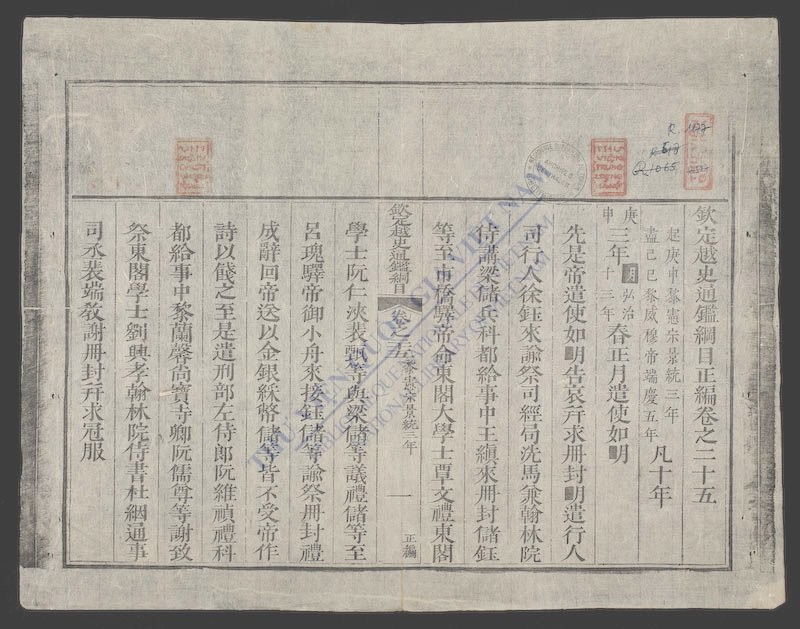 欽定越史通鑑綱目正編卷之二十五
起庚申黎憲宗景統三年
盡己巳黎威穆帝端慶五年
凡十年
庚申
三年
明弘治
十三年
春正月遣使如明
先是帝遣使如明告哀幷求册封明遣行人
司行人徐鈺來諭祭司經局洗馬兼翰林院
侍講梁儲兵科都給事中王縝來册封儲鈺
等至市橋驛帝命東閣大學士覃文禮東閣
欽定越史通鑑綱目
卷之二十五
黎憲宗景統三年
一
正編
學士阮仁浹裴甄等與梁儲等議禮儲等至
呂瑰驛帝御小舟來接鈺儲等諭祭册封禮
成辭回帝送以金銀綵幣儲等皆不受帝作
詩以餞之至是遣刑部左侍郎阮維禎禮科
都給事中黎蘭馨尚寶寺卿阮儒尊等謝致
祭東閣學士劉興孝翰林院侍書杜絪通事
司丞裴端教謝册封幷求冠服
R. 1177
R. 1065
THƯ VIỆN QUỐC GIA VIỆT NAM
BIBLIOTHÈQUE NATIONALE DU VIETNAM
NATIONAL LIBRARY OF VIETNAM